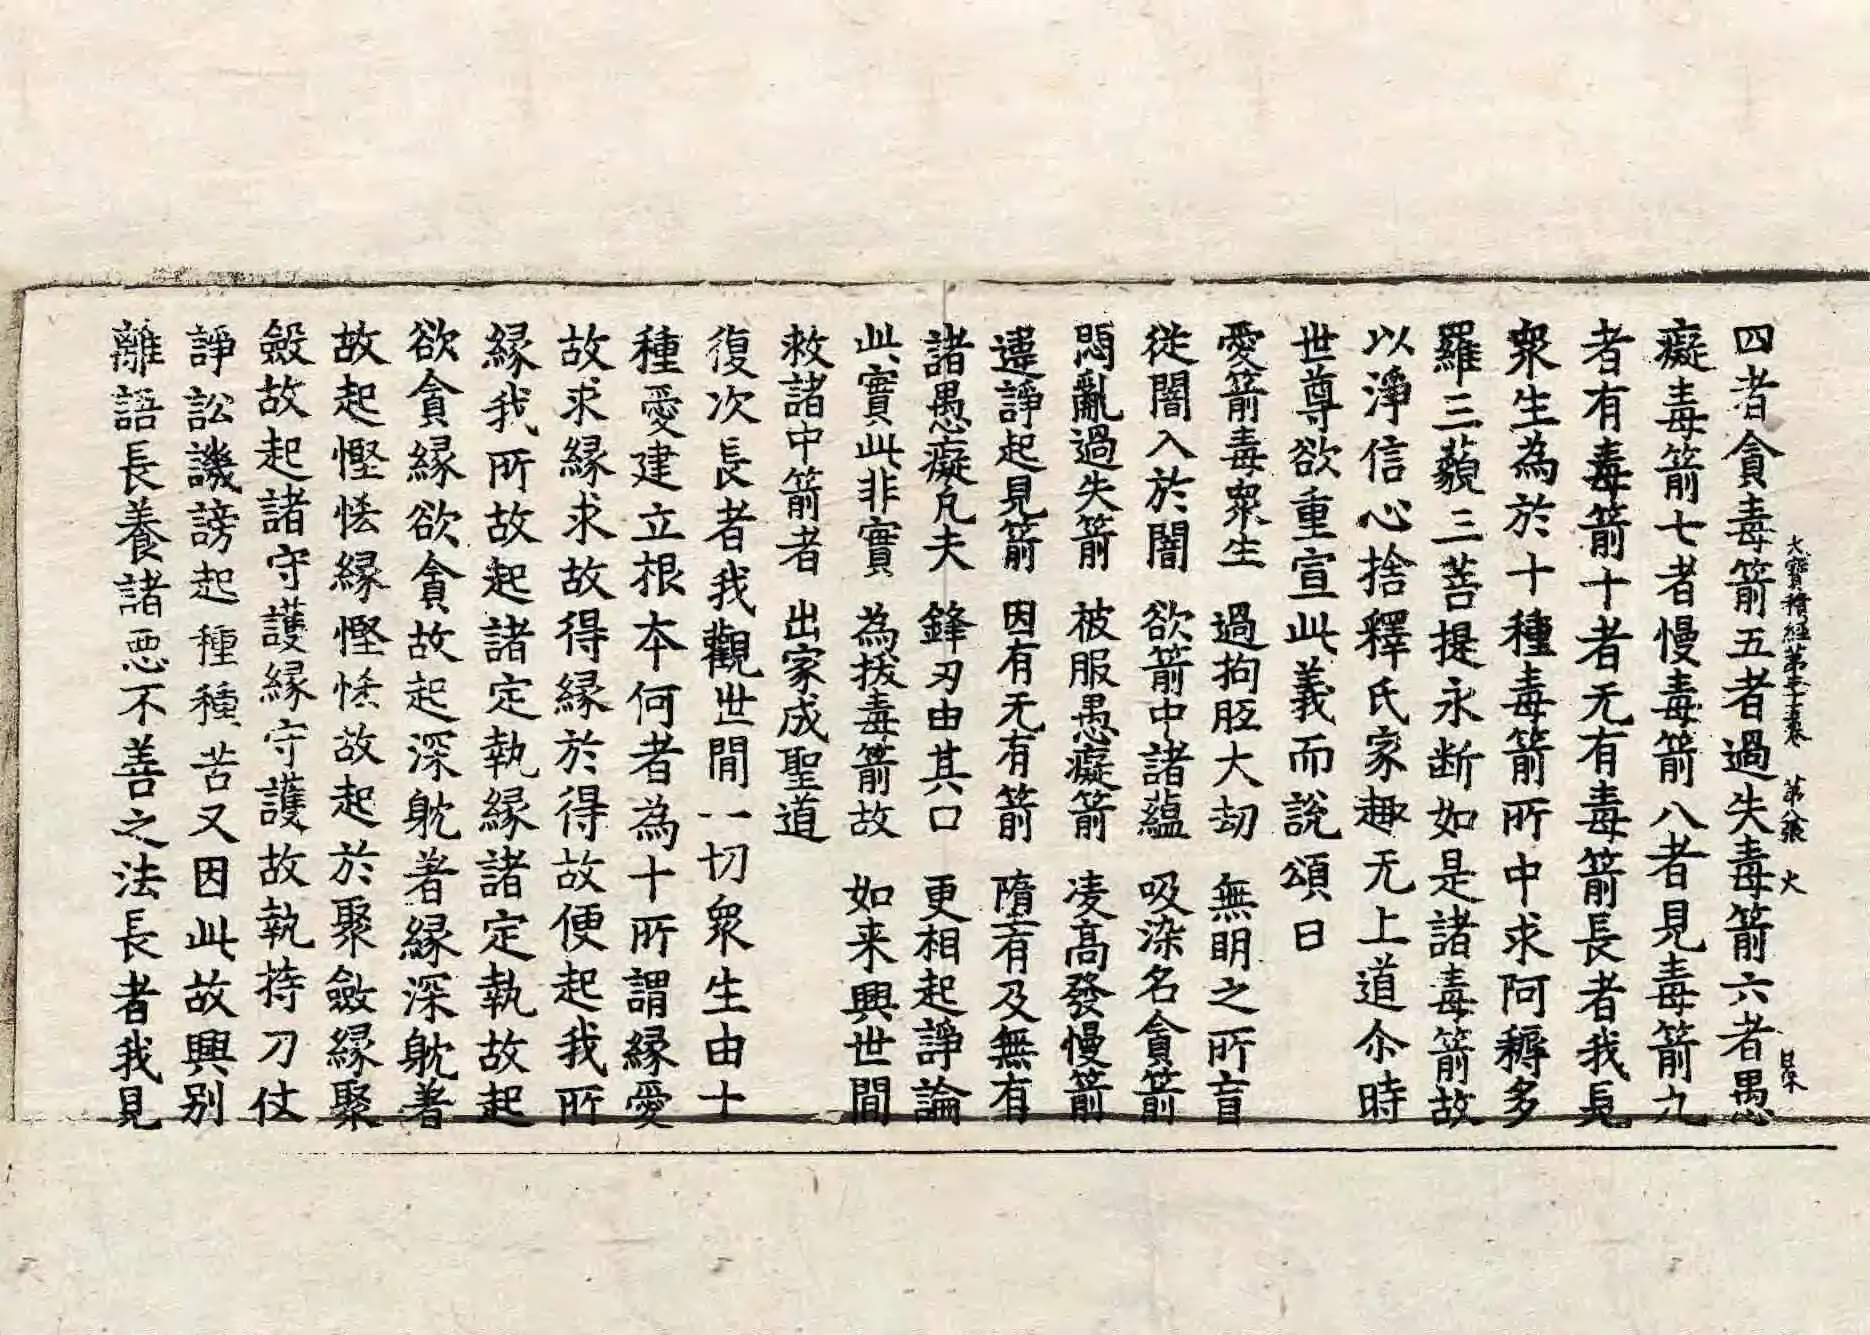 大寶積經第三十五卷　第八張　火
四者貪毒箭五者過失毒箭六者愚
癡毒箭七者慢毒箭八者見毒箭九
者有毒箭十者无有毒箭長者我見
衆生為於十種毒箭所中求阿耨多
羅三藐三菩提永断如是諸毒箭故
以淨信心捨釋氏家趣无上道尒時
世尊欲重宣此義而說頌曰
愛箭毒衆生　過拘胝大劫　無明之所盲
從闇入於闇　欲箭中諸蘊　吸染名貪箭
悶亂過失箭　被服愚癡箭　凌高發慢箭
違諍起見箭　因有无有箭　隋有及無有
諸愚癡凡夫　鋒刃由其口　更相起諍論
此實此非實　為拔毒箭故　如来興世間
救諸中箭者　出家成聖道
復次長者我觀世間一切衆生由十
種愛建立根本何者為十所謂縁愛
故求縁求故得縁於得故便起我所
縁我所故起諸定執縁諸定執故起
欲貪縁欲貪故起深躭著縁深躭著
故起慳悋縁慳悋故起於聚斂縁聚
斂故起諸守護縁守護故執持刀仗
諍訟譏謗起種種苦又因此故興别
離語長養諸惡不善之法長者我見